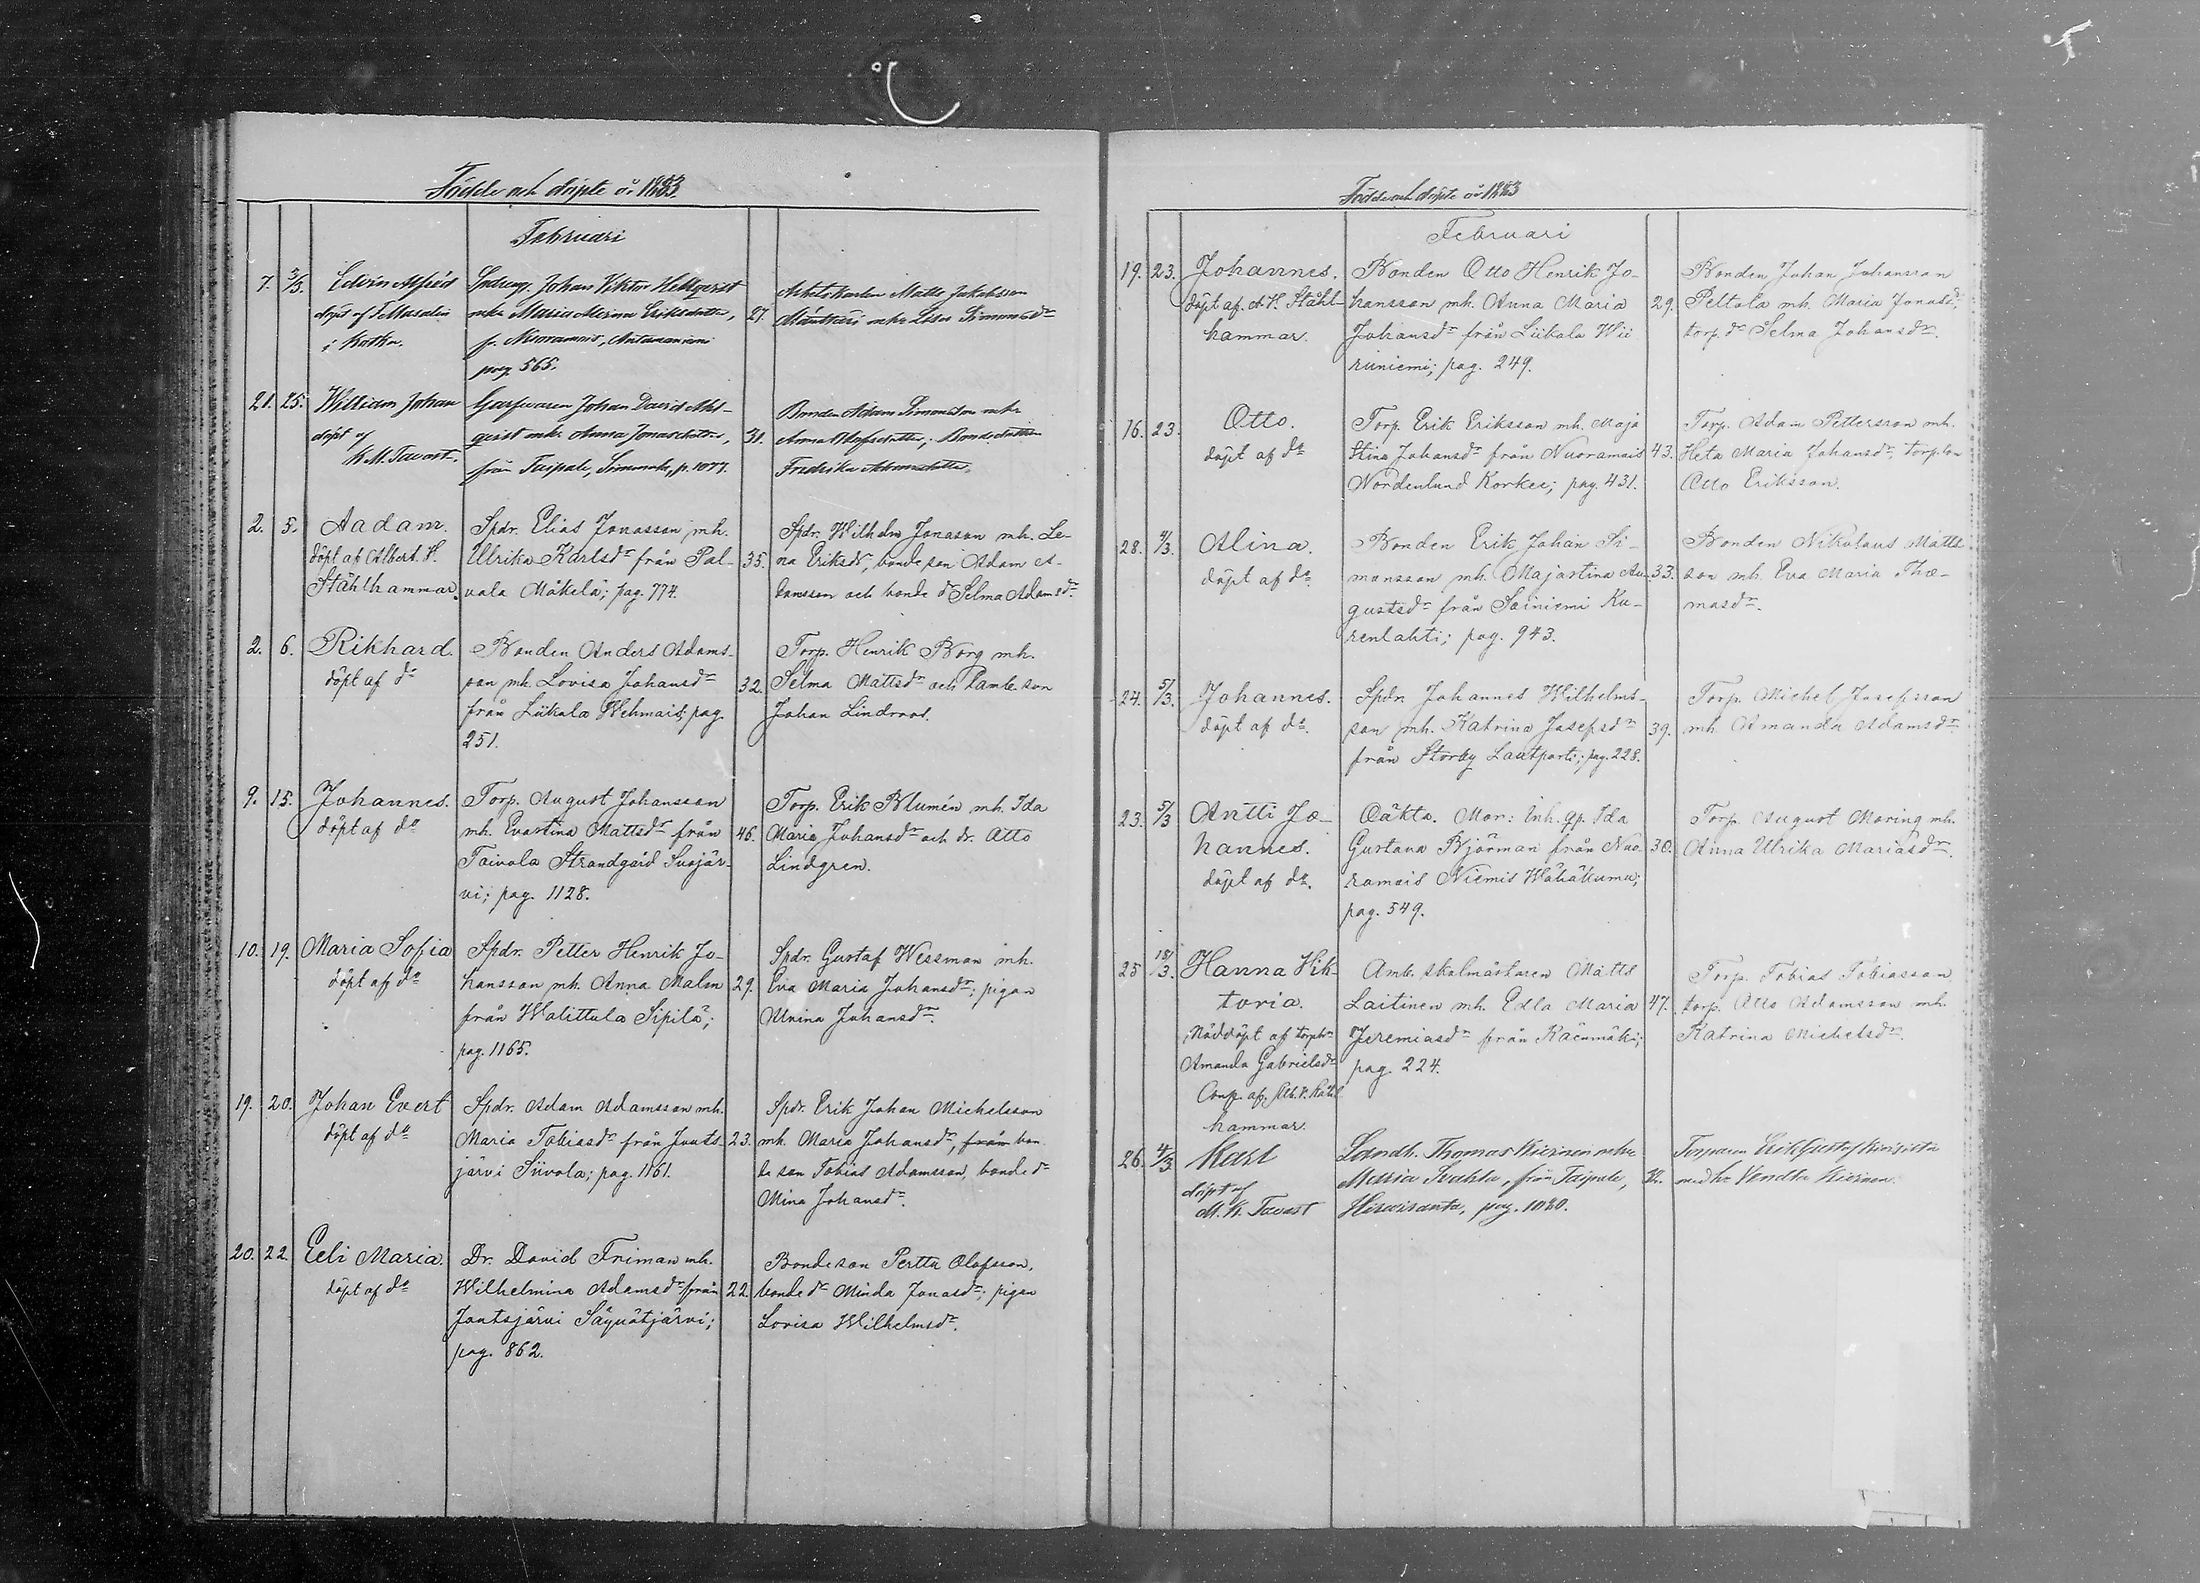 Födde och döpte år 1883.
Februari
7. 3/3. Edvin Alfred
döpt af
i Kotka.
Johan Viktor Hellqvist
mhu Maria Eriksdotter,
f. Nuoramois,
pag. 565.
27.
Matts Jakobsson
mhu Simonsdr
21. 25. William Johan
döpt af
K. M. Tavast.
Garfvaren Johan David Ahl-
qvist mhu Anna Jonasdotter,
från Taipale, p. 1077.
31.
Bonden Adam Simonsson mhu
Anna Olofsdotter; Bondedottern
Fredrika
2. 5. Aadam.
döpt af Albert H.
Stählhammar.
Spdr. Elias Jonasson mh.
Ulrika Karlsdr från Pal-
vala Mäkelä; pag. 774.
35.
Spdr. Wilhelm Jonason mh. Le-
na Eriksdr, bondeson Adam A-
damsson och bonde dr Selma Adamsdr
2. 6. Rikhard.
döpt af do
Bonden Anders Adams-
son mh. Lovisa Johansdr
från Liikala Wehmais; pag.
251.
32.
Torp. Henrik Borg mh.
Selma Mattsdr och
Johan Lindroos.
9. 15. Johannes.
döpt af do
Torp. August Johansson
mh. Evastina Mattsdr från
Taivola Strandgård Suojär-
vi; pag. 1128.
46.
Torp. Erik Blumén mh. Ida
Maria Johansdr och dr. Otto
Lindgren.
10. 19. Maria Sofia
döpt af do
Spdr. Petter Henrik Jo-
hansson mh. Anna Malm
från Walittula Sipilä;
pag. 1165.
29.
Spdr. Gustaf Wessman mh.
Eva Maria Johansdr; pigan
Johansdr
19. 20. Johan Evert
döpt af do
Spdr. Adam Adamsson mh.
Maria Tobiasdr från Jouts-
järvi Siivola; pag. 1161.
23.
Spdr. Erik Johan Michelsson
mh. Maria Johansdr, från bon-
deson Tobias Adamsson, bonde dr
Mina Johansdr.
20. 22. Eeli Maria.
döpt af do
Dr. David Friman mh.
Wilhelmina Adamsdr från
Joutsjärvi Säynätjärvi;
pag. 862.
22.
Bondeson Perttu Olofsson,
bonde dr Minda Jonasdr; pigan
Lovisa Wilhelmsdr.
Födde och döpte år 1883
Februari
19. 23. Johannes.
döpt af. A H. Ståhl-
hammar.
Bonden Otto Henrik Jo-
hansson mh. Anna Maria
Johansdr från Liikala Wii
riiniemi; pag. 249.
29.
Bonden Johan Johansson
Peltola mh. Maria Jonasdr,
torp. dr Selma Johansdr.
16. 23. Otto.
döpt af do
Torp. Erik Eriksson mh. Maja
Stina Johansdr från Nuoramois
Nordenlund Korkee; pag. 431.
43.
Torp. Adam Pettersson mh.
Heta Maria Johansdr, torp. son
Otto Eriksson.
28. 4/3. Alina.
döpt af do.
Bonden Erik Johan Si-
monsson mh. Majastina Au-
gustsdr från Soiniemi Ku-
renlahti; pag. 943.
33.
Bonden Nikolaus Matts
son mh. Eva Maria Tho-
masdr.
24. 5/3. Johannes.
döpt af do.
Spdr. Johannes Wilhelms-
son mh. Katrina Josefsdr
från Storby Lautporti; pag. 228.
39.
Torp. Michel Josefsson
mh. Amanda Adamsdr
23. 5/3 Antti Jo-
hannes.
döpt af do.
Oäkta. Mor: Inh. qp. Ida
Gustava Björman från Nuo-
ramois Niemis Wähäkumu;
pag. 549.
30.
Torp. August Moring mh.
Anna Ulrika Mariasdr.
25 18/3. Hanna Vik-
toria.
Nöddöpt af
Amanda Gabrielsdr
Conf. af, Alb. H. Ståhl
hammar.
Amb. skolmästaren Matts
Laitinen mh. Edla Maria
Jeremiasdr från Käenmäki;
pag. 224.
47.
Torp. Tobias Tobiasson
torp. Otto Adamsson mh.
Katrina Michelsdr.
26. 4/3 Karl
döpt af
M. K. Tavast
Landb. Thomas Kiernen mhu
Maria från Taipale,
pag. 1080.
32.
Torparen Erik Gustaf
medhu Vendla Kiernen.